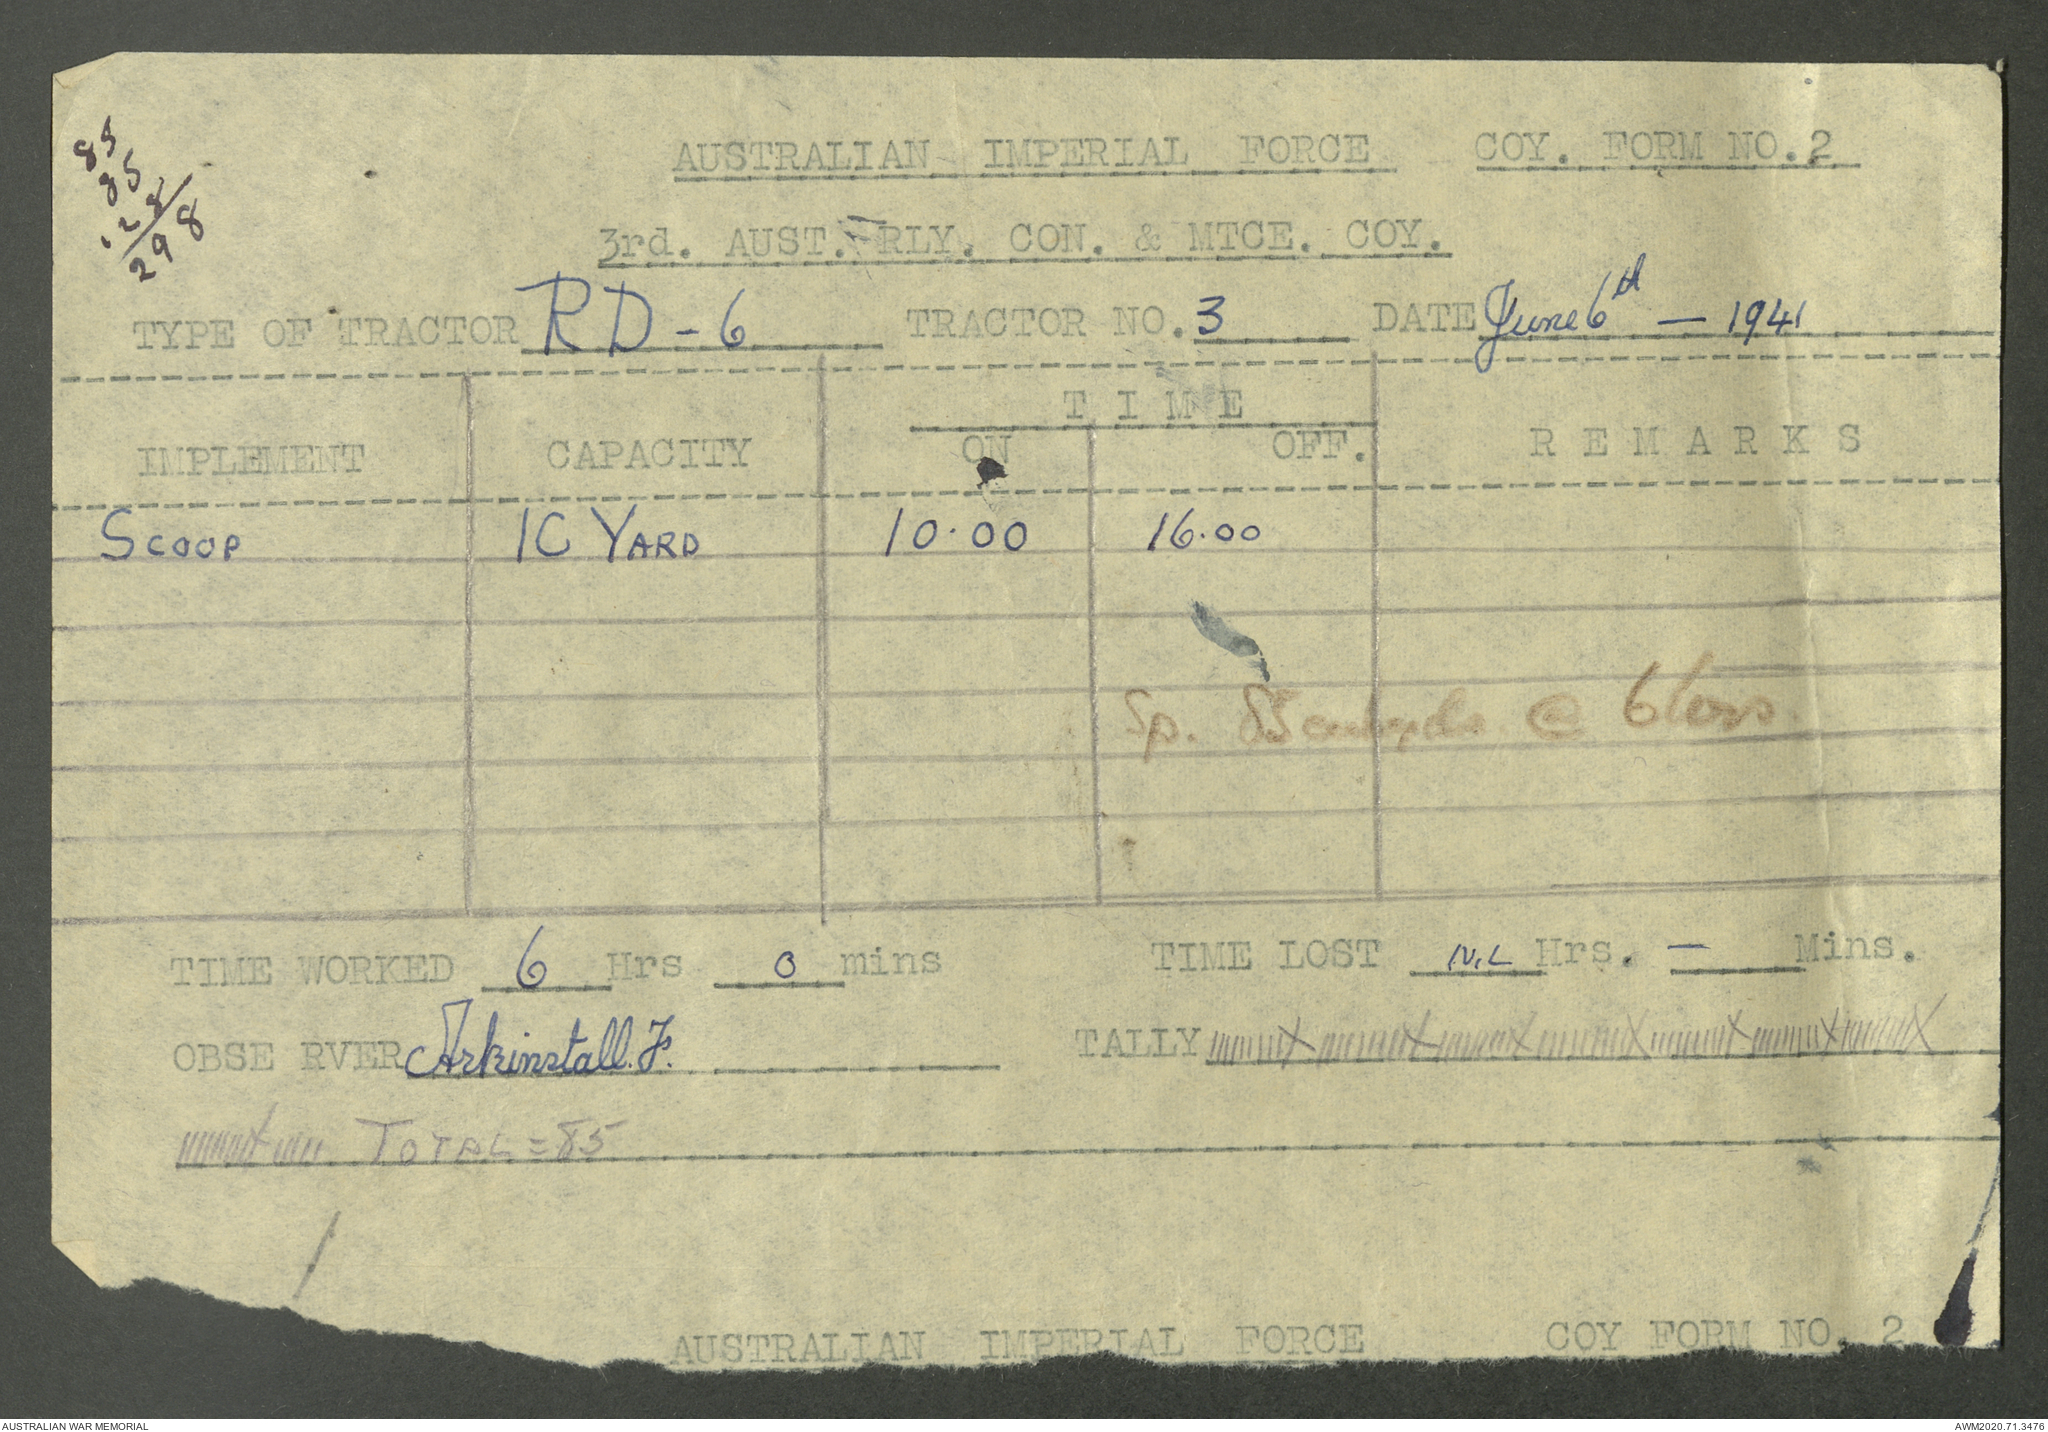 85
85
128
298
AUSTRALIAN IMPERIAL FORCE COY. FORM NO.2
3rd. AUST. RLY. CON. & MTCE. COY.
TYPE OF TRACTOR RD-6 TRACTOR NO. 3 DATE June 6th — 1941
T I M E
IMPLEMENT CAPACITY ON OFF. R E M A R K S
SCOOP 1C YARD 10.00 16.00
Sp. @
TIME WORKED 6 Hrs 0 mins TIME LOST NIL Hrs. — Mins.
OBSE RVER Arkinstall. F. TALLY
TOTAL = 85
AUSTRALIAN IMPERIAL FORCE COY FORM NO. 2
AUSTRALIAN WAR MEMORIAL AWM2020.71.3476